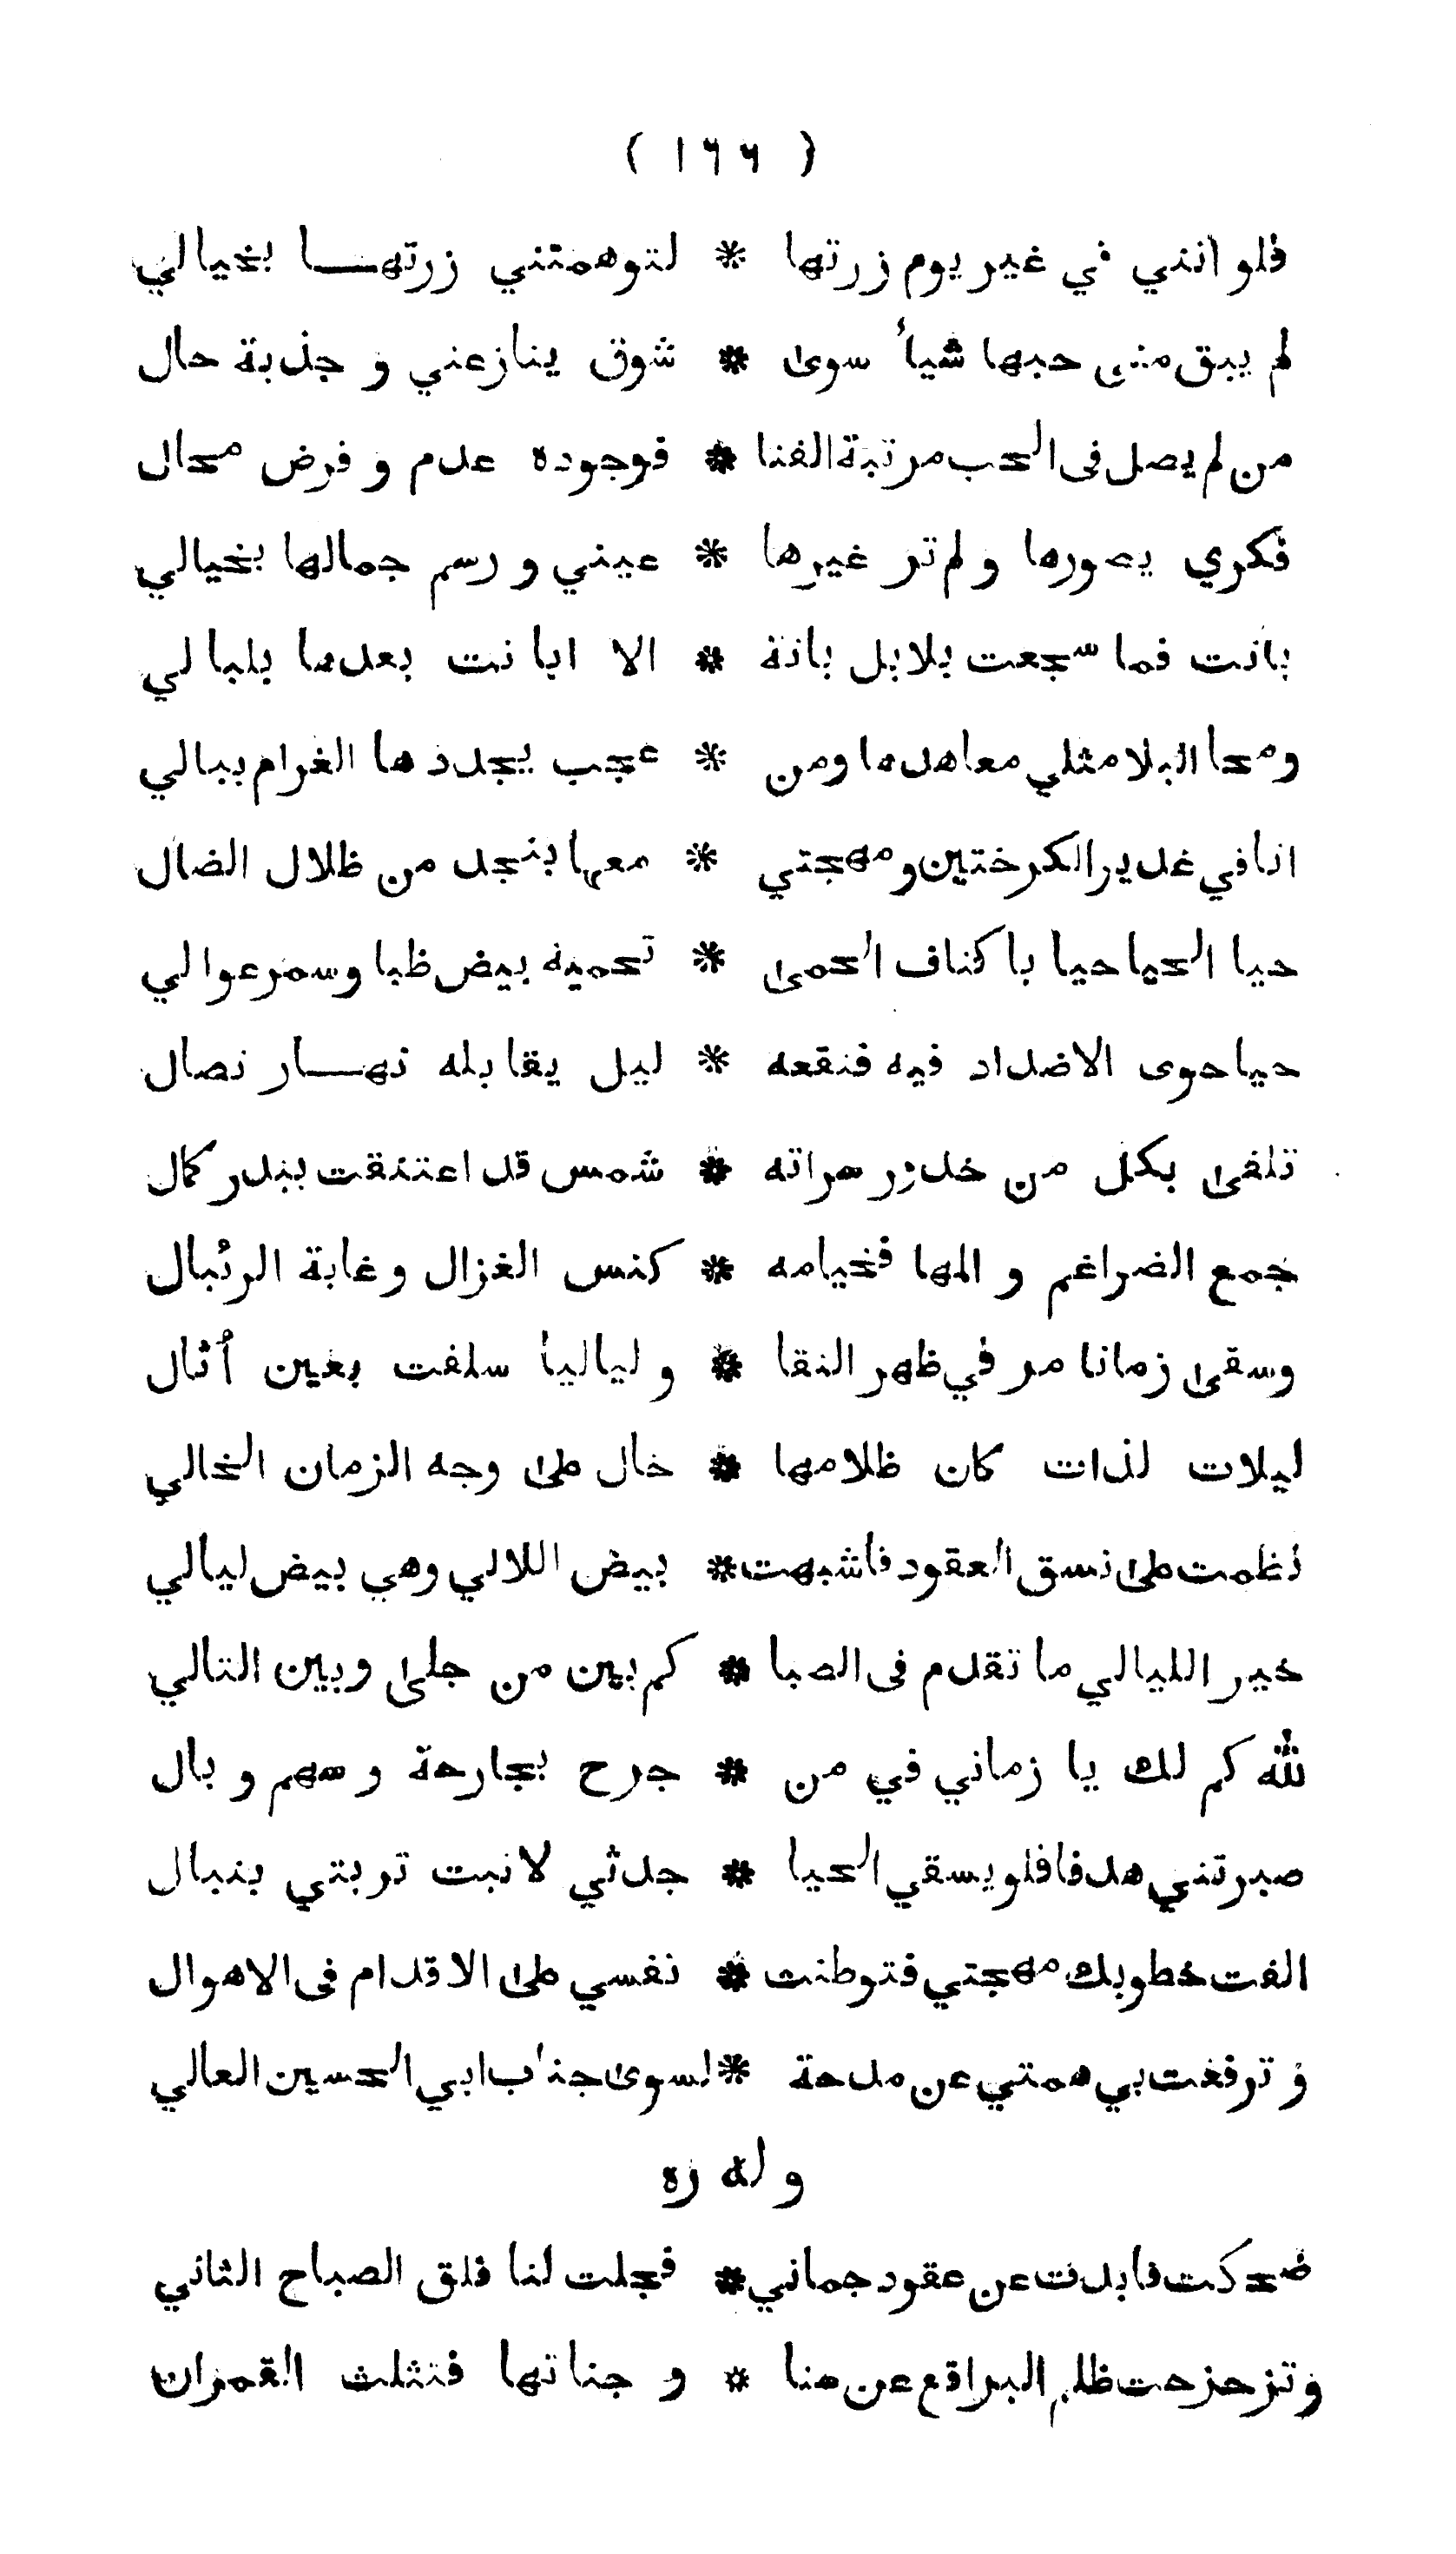 ( ١٦٦ )
فلو انني في غير يوم زرتها * لتوهمتني زرتهـــا بخيالي
لم يبق مني حبها شيأ سوى * شوق ينازعني و جذبة حال
من لم يصل فى الحب مرتبة الفنا * فوجوده عدم و فرض محال
فكري يصورها و لم تر غيرها * عيني و رسم جمالها بخيالي
بانت فما سجعت بلابل بانة * الا ابانت بعدها بلبالي
ومحا البلا مثلي معاهدها ومن * عجب يجددها الغرام ببالي
انا في غدير الكرختين و مهجتي * معها بنجد من ظلال الضال
حيا الحيا حيا باكناف الحمى * تحميه بيض ظبا وسمر عوالي
حيا حوى الاضداد فيه فنقعه * ليل يقابله نهـــار نصال
تلفى بكل من خدور سراته * شمس قد اعتنقت ببدر كمال
جمع الضراغم و المها فخيامه * كنس الغزال و غابة الرئبال
وسقى زمانا مر في ظهر النقا * و لياليا سلفت بعين أثال
ليلات لذات كان ظلامها * خال على وجه الزمان الخالي
نظمت على نسق العقود فاشبهت * بيض اللالي وهي بيض ليالي
خير الليالي ما تقدم فى الصبا * كم بين من جلى وبين التالي
لله كم لك يا زماني في من * جرح بجارحة و سهم و بال
صيرتني هدفا فلو يسقي الحيا * جدثي لانبت تربتي بنبال
الفت خطوبك مهجتي فتوطنت * نفسي على الاقدام فى الاهوال
و ترفعت بي همتي عن مدحة * لسوى جناب ابي الحسين العالي
و له ره
ضحكت فابدت عن عقود جماني * فجلت لنا فلق الصباح الثاني
و تزحزحت ظلم البراقع عن سنا * و جناتها فتثلث القمران